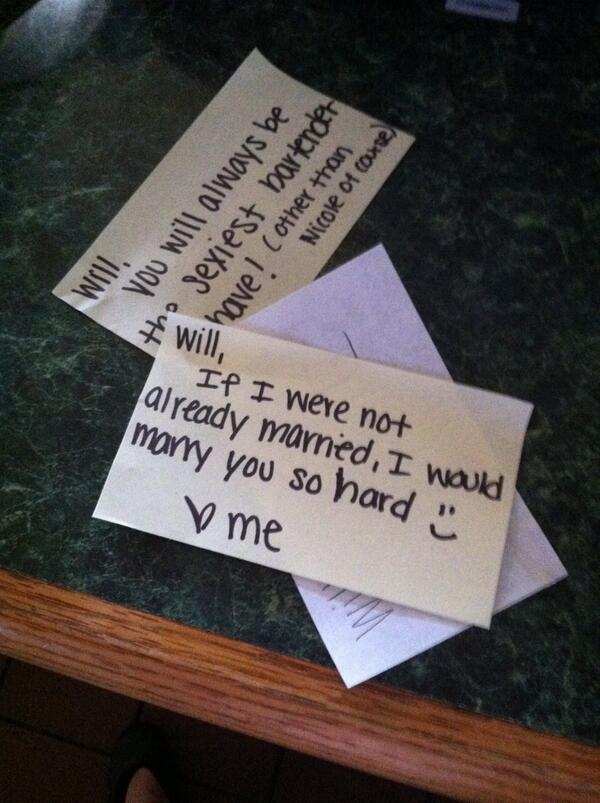 Will,
You will always be
the sexiest bartender
have! (other than
Nicole of course)
Will,
If I were not
already married, I would
marry you so hard :)
♡ me